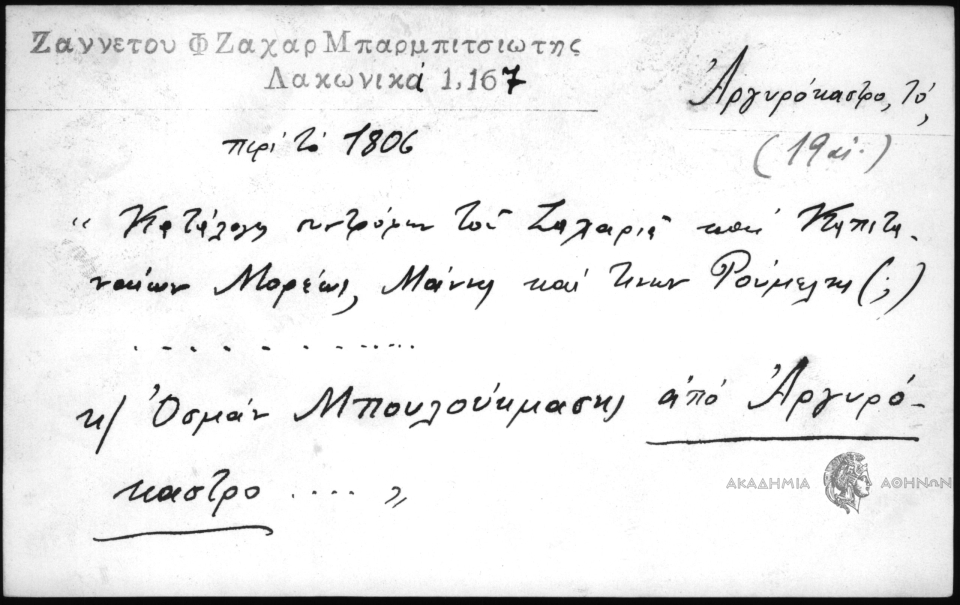 Ζαννετου Φ Ζαχαρ Μπαρμπιτσιωτης
Λακωνικά 1,167
Ἀργυρόκαστρο, τό,
περί τό 1806
(19 αἰ.)
" Κατάλογος συντρόφων τοῦ Ζαχαριᾶ καί Καπιτα-
ναίων Μορέως, Μάνης καί τινων Ρούμελης (;)
. . . . . . . . . . . .
κ/ Ὀσμάν Μπουλούκμπασης ἀπό Ἀργυρό-
καστρο .... "
ΑΚΑΔΗΜΙΑ ΑΘΗΝΩΝ